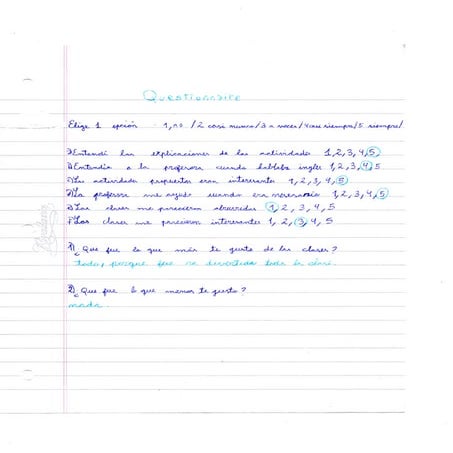 Questionnaire
Elige 1 opción 1, no / 2 casi nunca / 3 a veces / 4 casi siempre / 5 siempre /
Entendí las explicaciones de las actividades 1, 2, 3, 4, 5
Entendía a la profesora cuando hablaba inglés 1, 2, 3, 4, 5
Las actividades propuestas eran interesantes 1, 2, 3, 4, 5
La profesora me ayudó cuando era necesario 1, 2, 3, 4, 5
Las clases me parecieron aburridas 1, 2, 3, 4, 5
Las clases me parecieron interesantes 1, 2, 3, 4, 5
1) ¿Que fue lo que más te gusto de las clases?
todo, porque fue re divertida toda la clase.
2) ¿Que fue lo que menos te gusto?
nada.